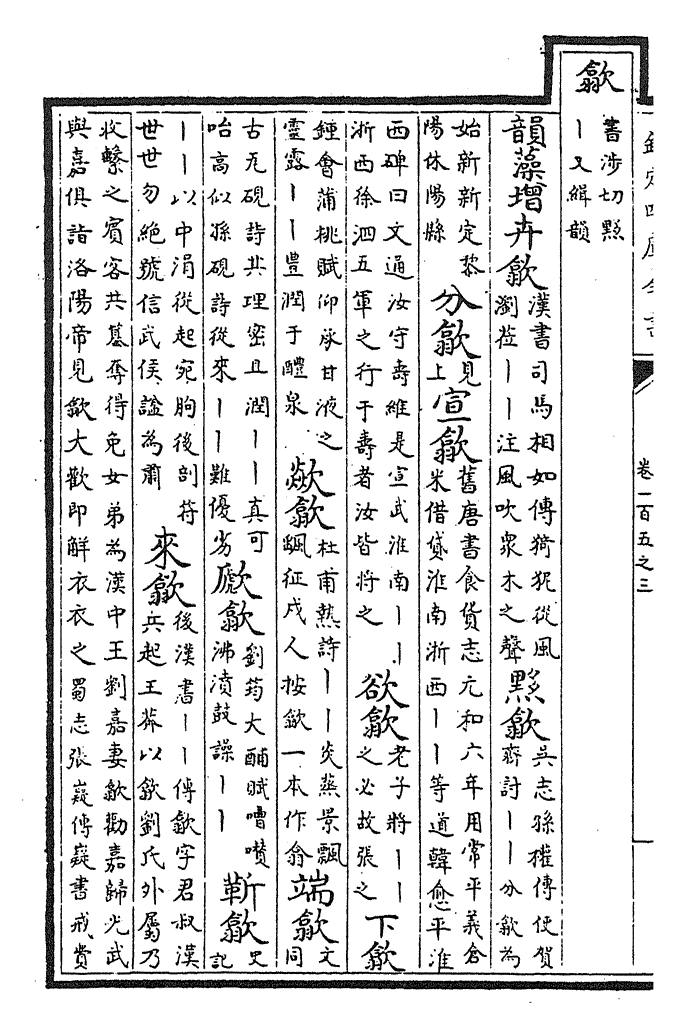 欽定四庫全書
卷一百五之三
歙書涉切黟丨又緝韻
韻藻增卉歙漢書司馬相如傳猗狔從風瀏莅丨丨注風吹衆木之聲黟歙吳志孫權傳使賀齊討丨丨分歙為
始新新定黎陽休陽縣分歙見上宣歙舊唐書食貨志元和六年用常平義倉米借貸淮南浙西丨丨等道韓愈平淮
西碑曰文通汝守壽維是宣武淮南丨丨浙西徐泗五軍之行于壽者汝皆將之欲歙老子將丨丨之必故張之下歙
鍾會蒲桃賦仰承甘液之靈露丨丨豊潤于醴泉歘歙杜甫熱詩丨丨炎蒸景飄颻征戍人按歙一本作翕端歙文同
古瓦硯詩其理密且潤丨丨真可咍高似孫硯詩從來丨丨難優劣歙劉筠大酺賦嘈囋沸潰鼓譟丨丨靳歙史記
丨丨以中涓從起宛朐後剖符世世勿絶號信武侯諡為肅來歙後漢書丨丨傳歙字君叔漢兵起王莽以歙劉氏外屬乃
收繫之賓客共簒奪得免女弟為漢中王劉嘉妻歙勸嘉歸光武與嘉俱詣洛陽帝見歙大歡即解衣衣之蜀志張嶷傳嶷書戒費